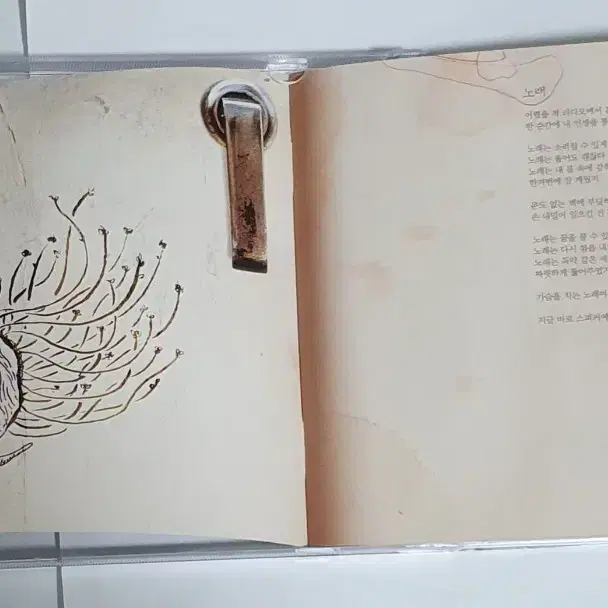 노래
어렸을 적 라디오에서
한 순간에 내 인생을
노래는 소리칠 수 있게
노래는 울어도 괜찮다
노래는 내 몸 속에
한꺼번에 잠 깨웠지
문도 없는 벽에
손 내밀어 일으킨
노래는 꿈을 꿀 수
노래는 다시 힘을 내
노래는 독약 같은
따뜻하게 불어주었지
가슴을 치는 노래여
지금 바로 스피커에